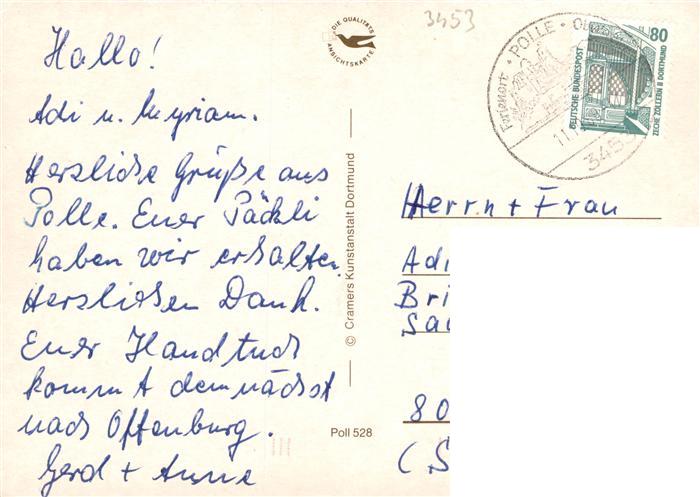 Hallo!
Adi u. Myriam.
Herzliche Grüße aus
Polle. Euer Päckli
haben wir erhalten.
Herzlichen Dank.
Euer Handtuch
kommt demnächst
nach Offenburg.
Gerd + Anne
DIE QUALITÄTS
ANSICHTSKARTE
© Cramers Kunstanstalt Dortmund
Poll 528
3453
Ferienort · POLLE ·
11.
345
80
DEUTSCHE BUNDESPOST
ZECHE ZOLLERN II DORTMUND
Herrn + Frau
Adi
Bri
80
(S